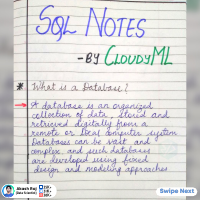 SQL NOTES
-BY CLOUDYML
* What is a Database?
→ A database is an organized
collection of data, stored and
retrieved digitally from a
remote or local computer system
Databases can be vast and
complex and such databases
are developed using fixed
design and modeling approaches
Akash Raj
(Data Scientist)
Swipe Next